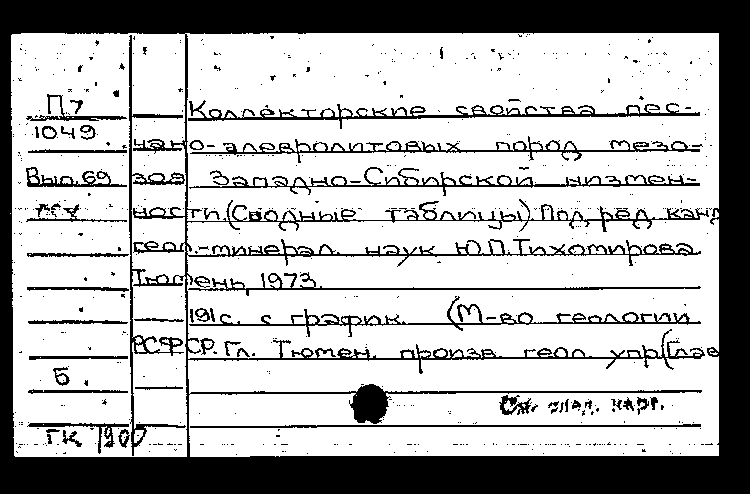 П7
1049
Вып. 69
Коллекторские свойства пес-
чано-алевролитовых пород мезо-
зоя Западно-Сибирской низмен-
ности. (Сводные таблицы). Под ред. канд
геол.-минерал. наук Ю.П. Тихомирова
Тюмень, 1973.
191 с. с график. (М-во геологии
РСФСР. Гл. Тюмен. произв. геол. упр. (Глав
Б
См. след. карт.
ГК 1900